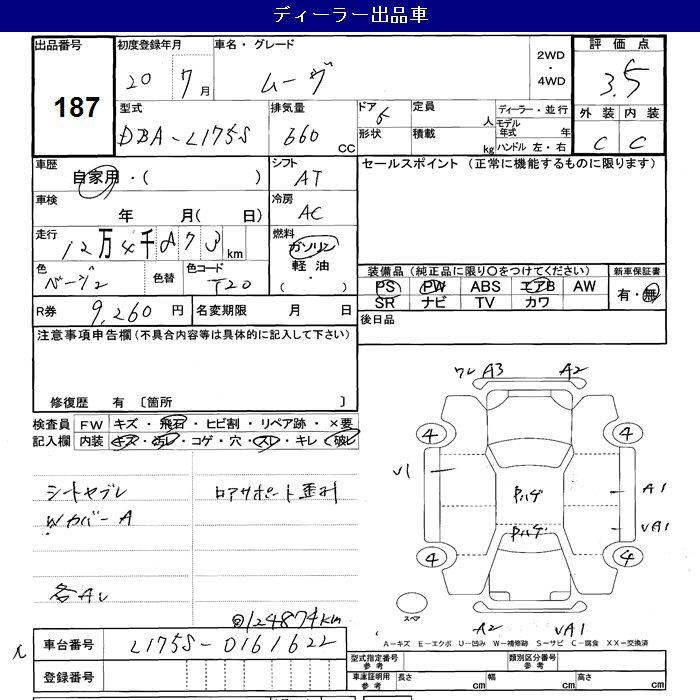 ディーラー出品車
出品番号 初度登録年月 車名・グレード 2WD・4WD 評価点
187 20 7月 ムーヴ 3.5
型式 排気量 ドア 定員 ディーラー・並行 外装 内装
DBA-L175S 660 CC 5 人 モデル年式 年 C C
形状 積載 kg ハンドル 左・右
車歴 シフト セールスポイント (正常に機能するものに限ります)
自家用・( ) AT
車検 冷房
年 月( 日) AC
走行 燃料
12万4千873km ガソリン
色 色替 色コード 軽油 装備品(純正品に限り○をつけてください) 新車保証書
ベージュ T20 ( ) PS PW ABS エアB AW 有・無
R券 9,260円 名変期限 月 日 SR ナビ TV カワ
注意事項申告欄(不具合内容等は具体的に記入して下さい) 後日品
修復歴 有 〔箇所 〕 ワレ A3 A2
検査員 FW キズ・飛石・ヒビ割・リペア跡・×要
記入欄 内装 キズ・汚レ・コゲ・穴・スレ・キレ・破レ 4 4
シートヤブレ ロアサポート歪ミ V1 ハゲ A1
Wカバー A ハゲ VA1
4 4
各Aレ
◎124874km スペア
A2 VA1
車台番号 L175S-0161622 A-キズ E-エクボ U-凹み W-補修跡 S-サビ C-腐食 XX-交換済
型式指定番号 参考 類別区分番号 参考
登録番号 車庫証明用 参考 長さ cm 幅 cm 高さ cm